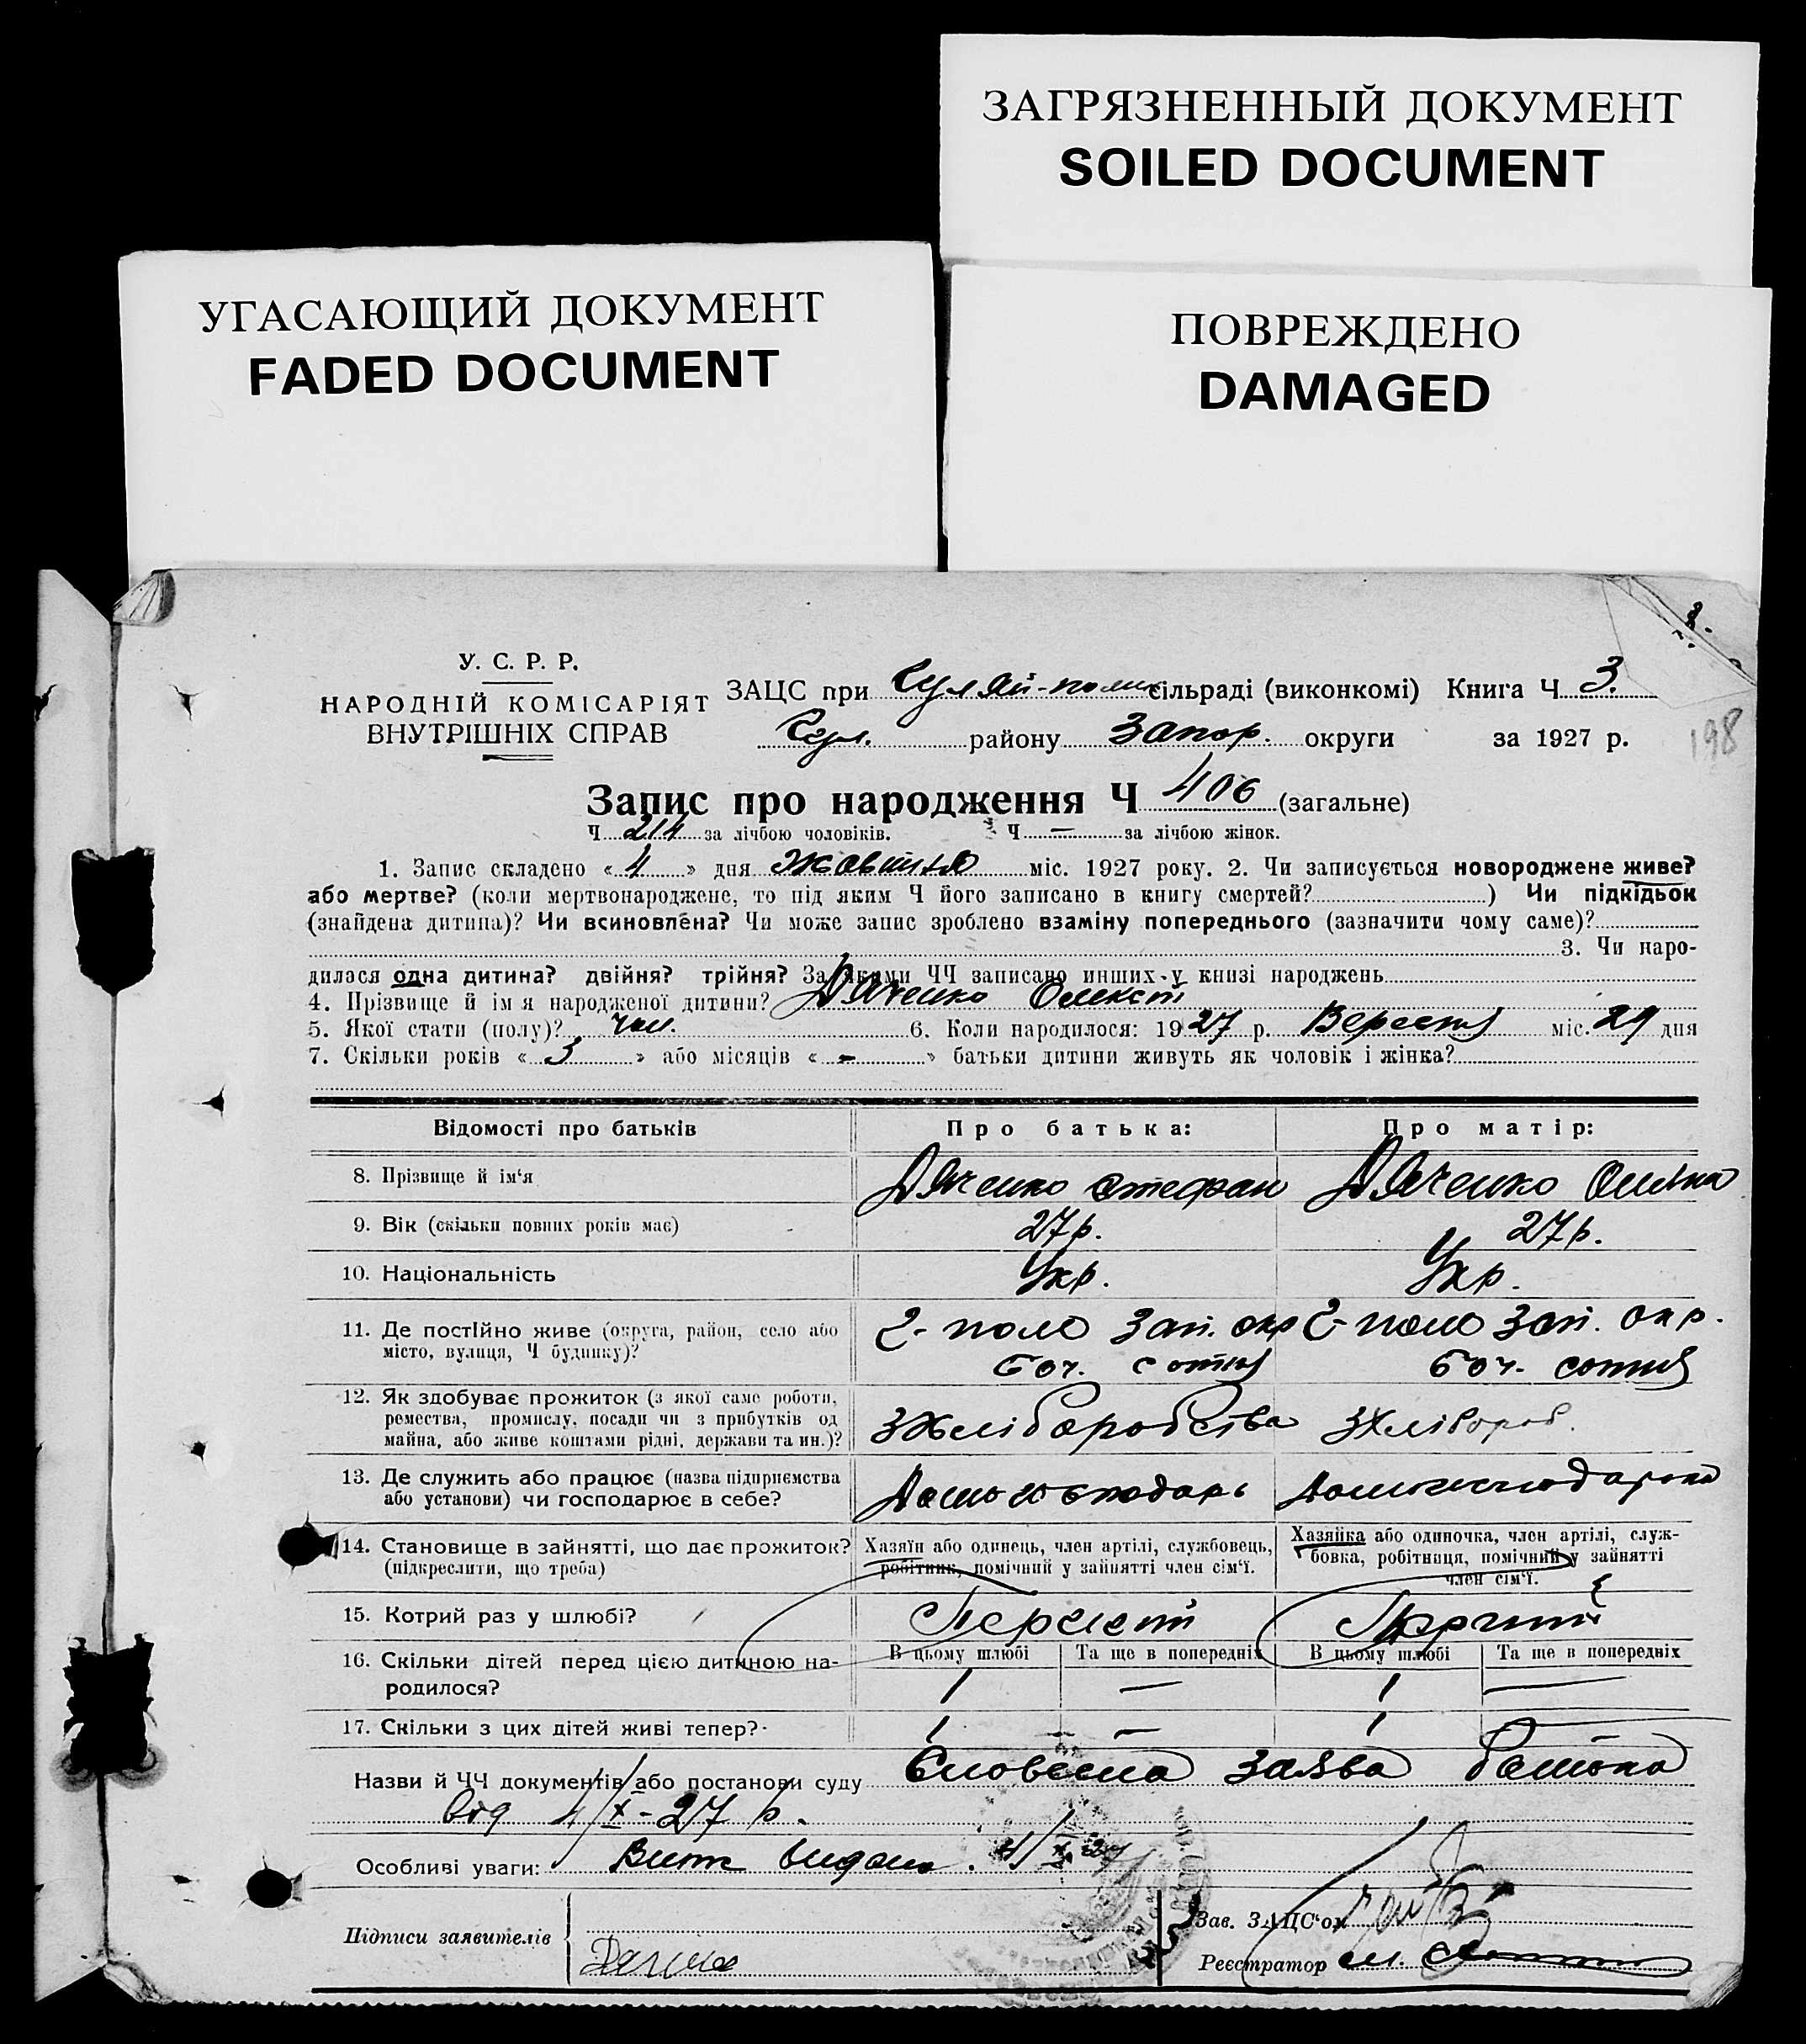 ЗАГРЯЗНЕННЫЙ ДОКУМЕНТ
SOILED DOCUMENT
УГАСАЮЩИЙ ДОКУМЕНТ
FADED DOCUMENT
ПОВРЕЖДЕНО
DAMAGED
У. С. Р. Р.
НАРОДНІЙ КОМІСАРІЯТ
ВНУТРІШНІХ СПРАВ
ЗАЦС при Гуляй-польск сільраді (виконкомі) Книга Ч 3.
Гул. району Запор. округи за 1927 р.
198
Запис про народження Ч 406 (загальне)
Ч 214 за лічбою чоловіків. Ч — за лічбою жінок.
1. Запис складено « 4 » дня Жовтня міс. 1927 року. 2. Чи записується новороджене живе?
або мертве? (коли мертвонароджене, то під яким Ч його записано в книгу смертей? ) Чи підкідьок
(знайдена дитина)? Чи всиновлена? Чи може запис зроблено взаміну попереднього (зазначити чому саме)?
3. Чи наро-
дилася одна дитина? двійня? трійня? За якими ЧЧ записано инших у книзі народжень
4. Прізвище й ім'я народженої дитини? Дяченко Олексій
5. Якої стати (полу)? чол. 6. Коли народилося: 1927 р. Вересня міс. 29 дня
7. Скільки років « 3 » або місяців « - » батьки дитини живуть як чоловік і жінка?
Відомості про батьків Про батька: Про матір:
8. Прізвище й ім'я Дяченко Стефан Дяченко Олена
9. Вік (скільки повних років має) 27 р. 27 р.
10. Національність Укр. Укр.
11. Де постійно живе (округа, район, село або місто, вулиця, Ч будинку)? Г-поле Зап. окр Г-поле Зап. окр.
6 оч. сотня 6 оч. сотня
12. Як здобуває прожиток (з якої саме роботи,
ремества, промислу, посади чи з прибутків од
майна, або живе коштами рідні, держави та ин.)? З Хліборобства З Хлібороб.
13. Де служить або працює (назва підприємства
або установи) чи господарює в себе? Домогосподарь Домогосподарка
14. Становище в зайнятті, що дає прожиток?
(підкреслити, що треба)
Хазяїн або одинець, член артілі, службовець,
робітник, помічний у зайнятті член сім'ї.
Хазяйка або одиночка, член артілі, служ-
бовка, робітниця, помічний у зайнятті
член сім'ї.
15. Котрий раз у шлюбі?
16. Скільки дітей перед цією дитиною на-
родилося?
В цьому шлюбі Та ще в попередніх В цьому шлюбі Та ще в попередніх
1 — 1 —
17. Скільки з цих дітей живі тепер? 1 — 1 —
Назви й ЧЧ документів або постанови суду Словесна заява батька
від 4/X-27 р.
Особливі уваги: Витяг видано. 4/X 27
Підписи заявителів
Зав. ЗАЦС'ом
Реєстратор